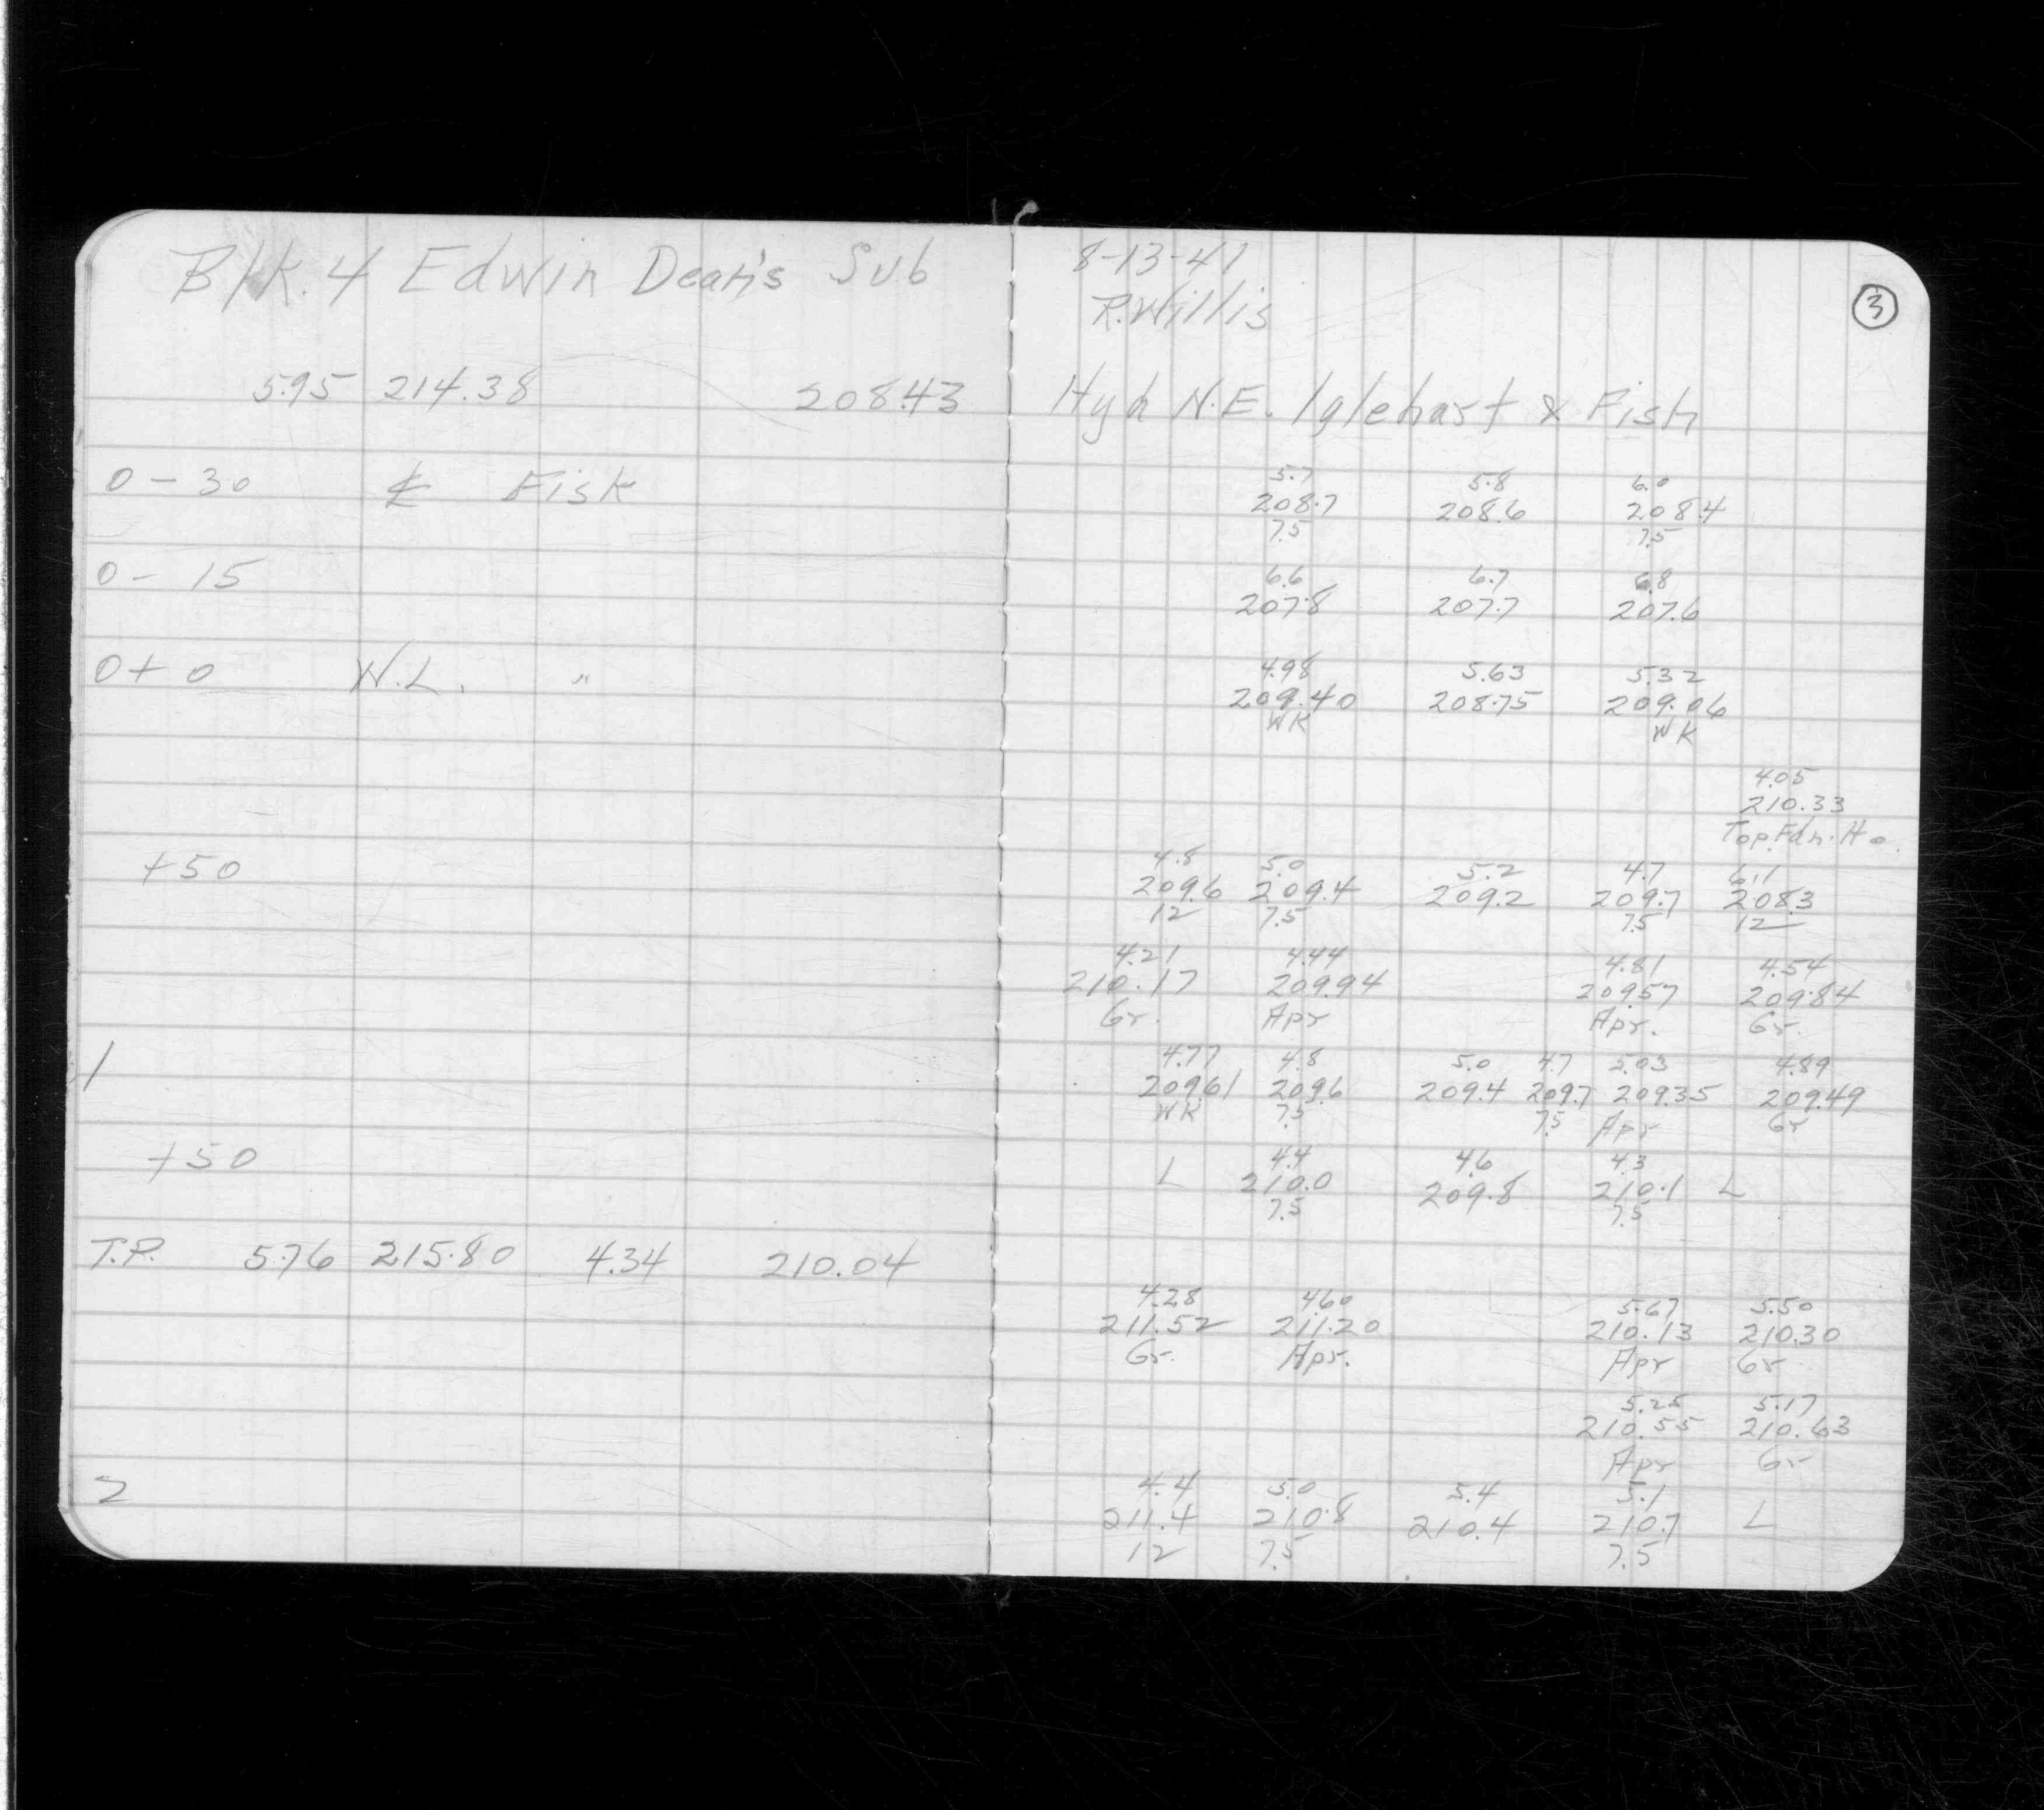 Blk. 4 Edwin Dean's Sub
5.95 214.38 208.43
0 - 30 ℄ Fisk
0 - 15
0 + 0 W.L. "
+50
1
+50
T.P. 5.76 215.80 4.34 210.04
2
8-13-41
R. Willis
3
Hyd N.E. Iglehart & Fish
5.7 5.8 6.0
208.7 208.6 208.4
7.5 7.5
6.6 6.7 6.8
207.8 207.7 207.6
4.98 5.63 5.32
209.40 208.75 209.06
WK WK
4.05
210.33
Top. Fdn. Ho.
4.8 5.0 5.2 4.7 6.1
209.6 209.4 209.2 209.7 208.3
12 7.5 7.5 12
4.21 4.44 4.81 4.54
210.17 209.94 209.57 209.84
Gr. Apr Apr. Gr.
4.77 4.8 5.0 4.7 5.03 4.89
209.61 209.6 209.4 209.7 209.35 209.49
WK 7.5 7.5 Apr Gr
4.4 4.6 4.3
L 210.0 209.8 210.1 L
7.5 7.5
4.28 4.60 5.67 5.50
211.52 211.20 210.13 210.30
Gr. Apr. Apr Gr
5.25 5.17
210.55 210.63
Apr Gr
4.4 5.0 5.4 5.1
211.4 210.8 210.4 210.7 L
12 7.5 7.5